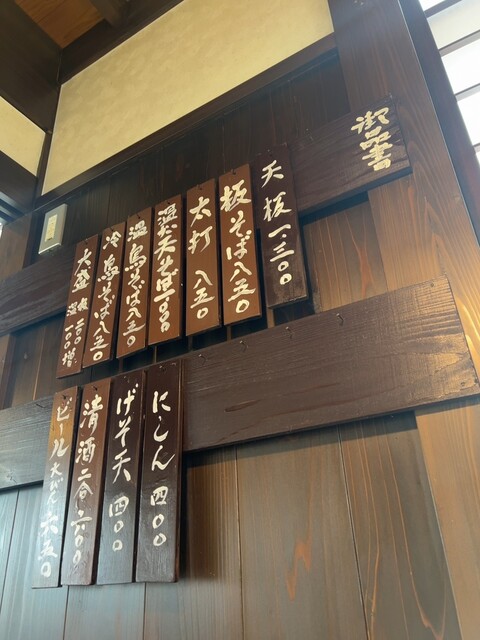 御品書
天板 一、三〇〇
板そば 八五〇
太打 八五〇
温だ天そば
温鳥そば 八五〇
冷鳥そば 八五〇
大盛 温 二〇〇 一〇〇増
にしん 四〇〇
げそ天 四〇〇
清酒二合 六〇〇
ビール 大びん 六五〇